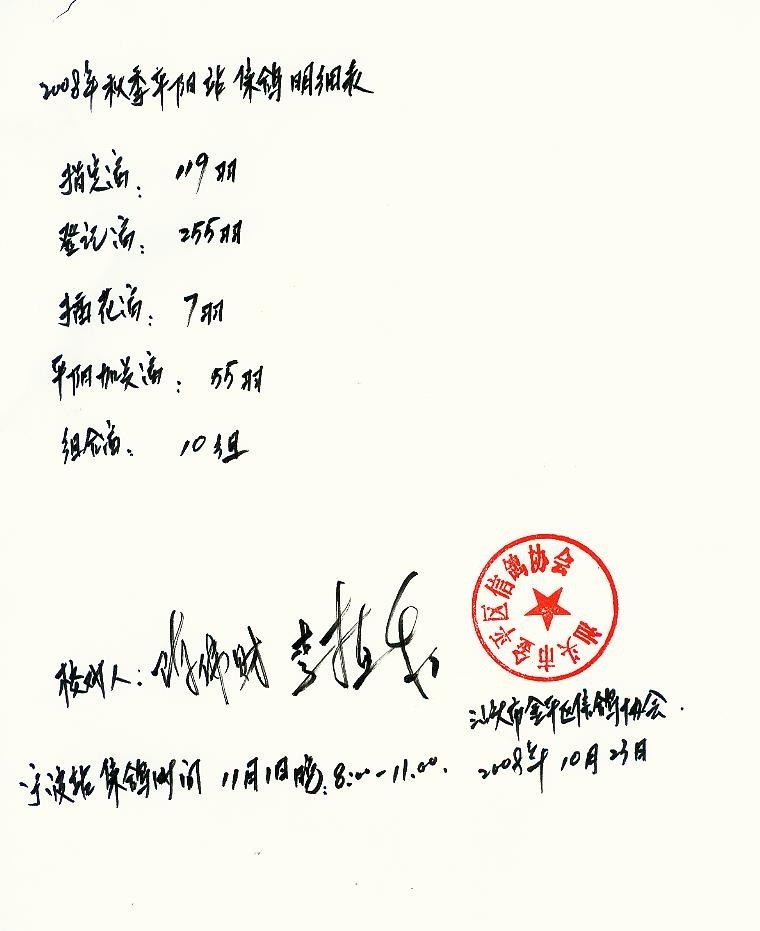 2008年秋季平阳站集鸽明细表
指定鸽：119羽
登记鸽：255羽
插花鸽：7羽
平阳加关鸽：55羽
组合鸽：10组
汕头市金平区信鸽协会
校对人：
汕头市金平区信鸽协会.
2008年10月23日
宁波站集鸽时间 11月1日晚：8:00-11:00.